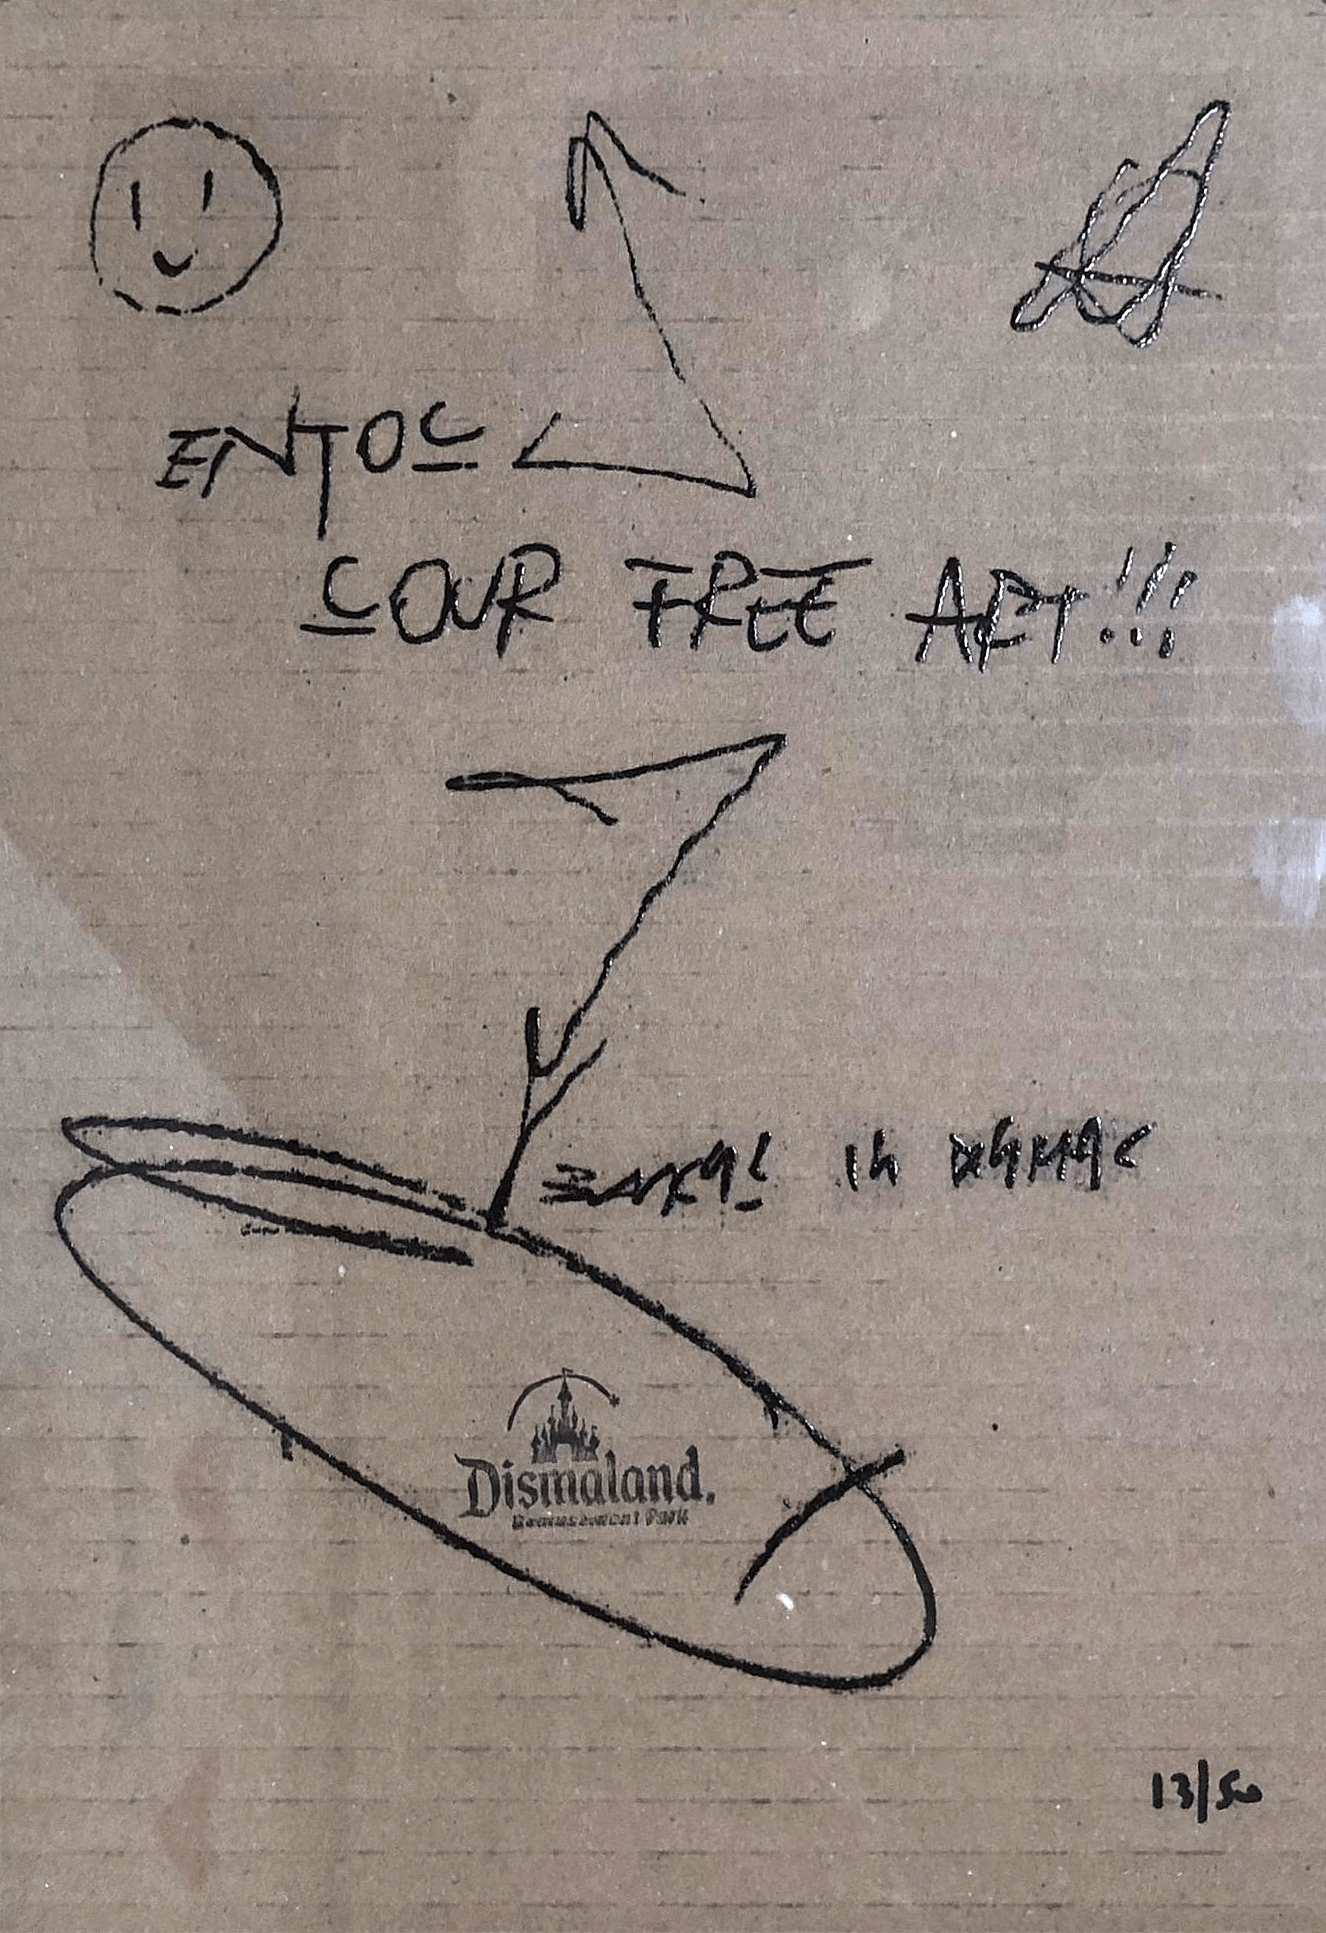 ENJOY
YOUR FREE ART!!!
Dismaland.
Bemusement Park
13/50